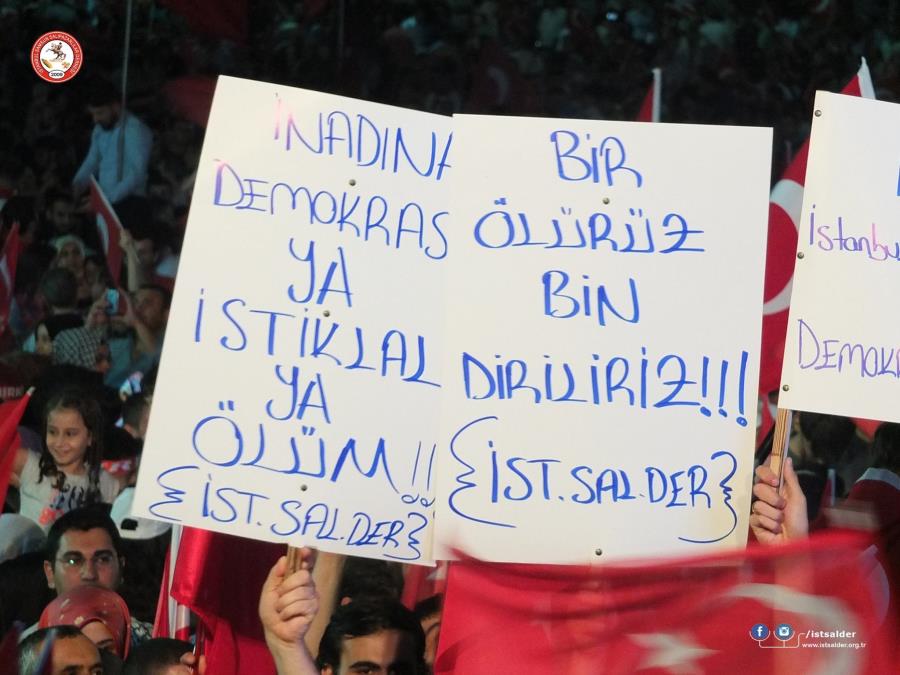 İNADINA
DEMOKRAS
YA
İSTİKLAL
YA
ÖLÜM!!
{İST.SAL.DER}
BİR
ÖLÜRÜZ
BİN
DİRİLİRİZ!!!
{İST.SAL.DER}
İstanbu
DEMOK
2009
/istsalder
www.istsalder.org.tr